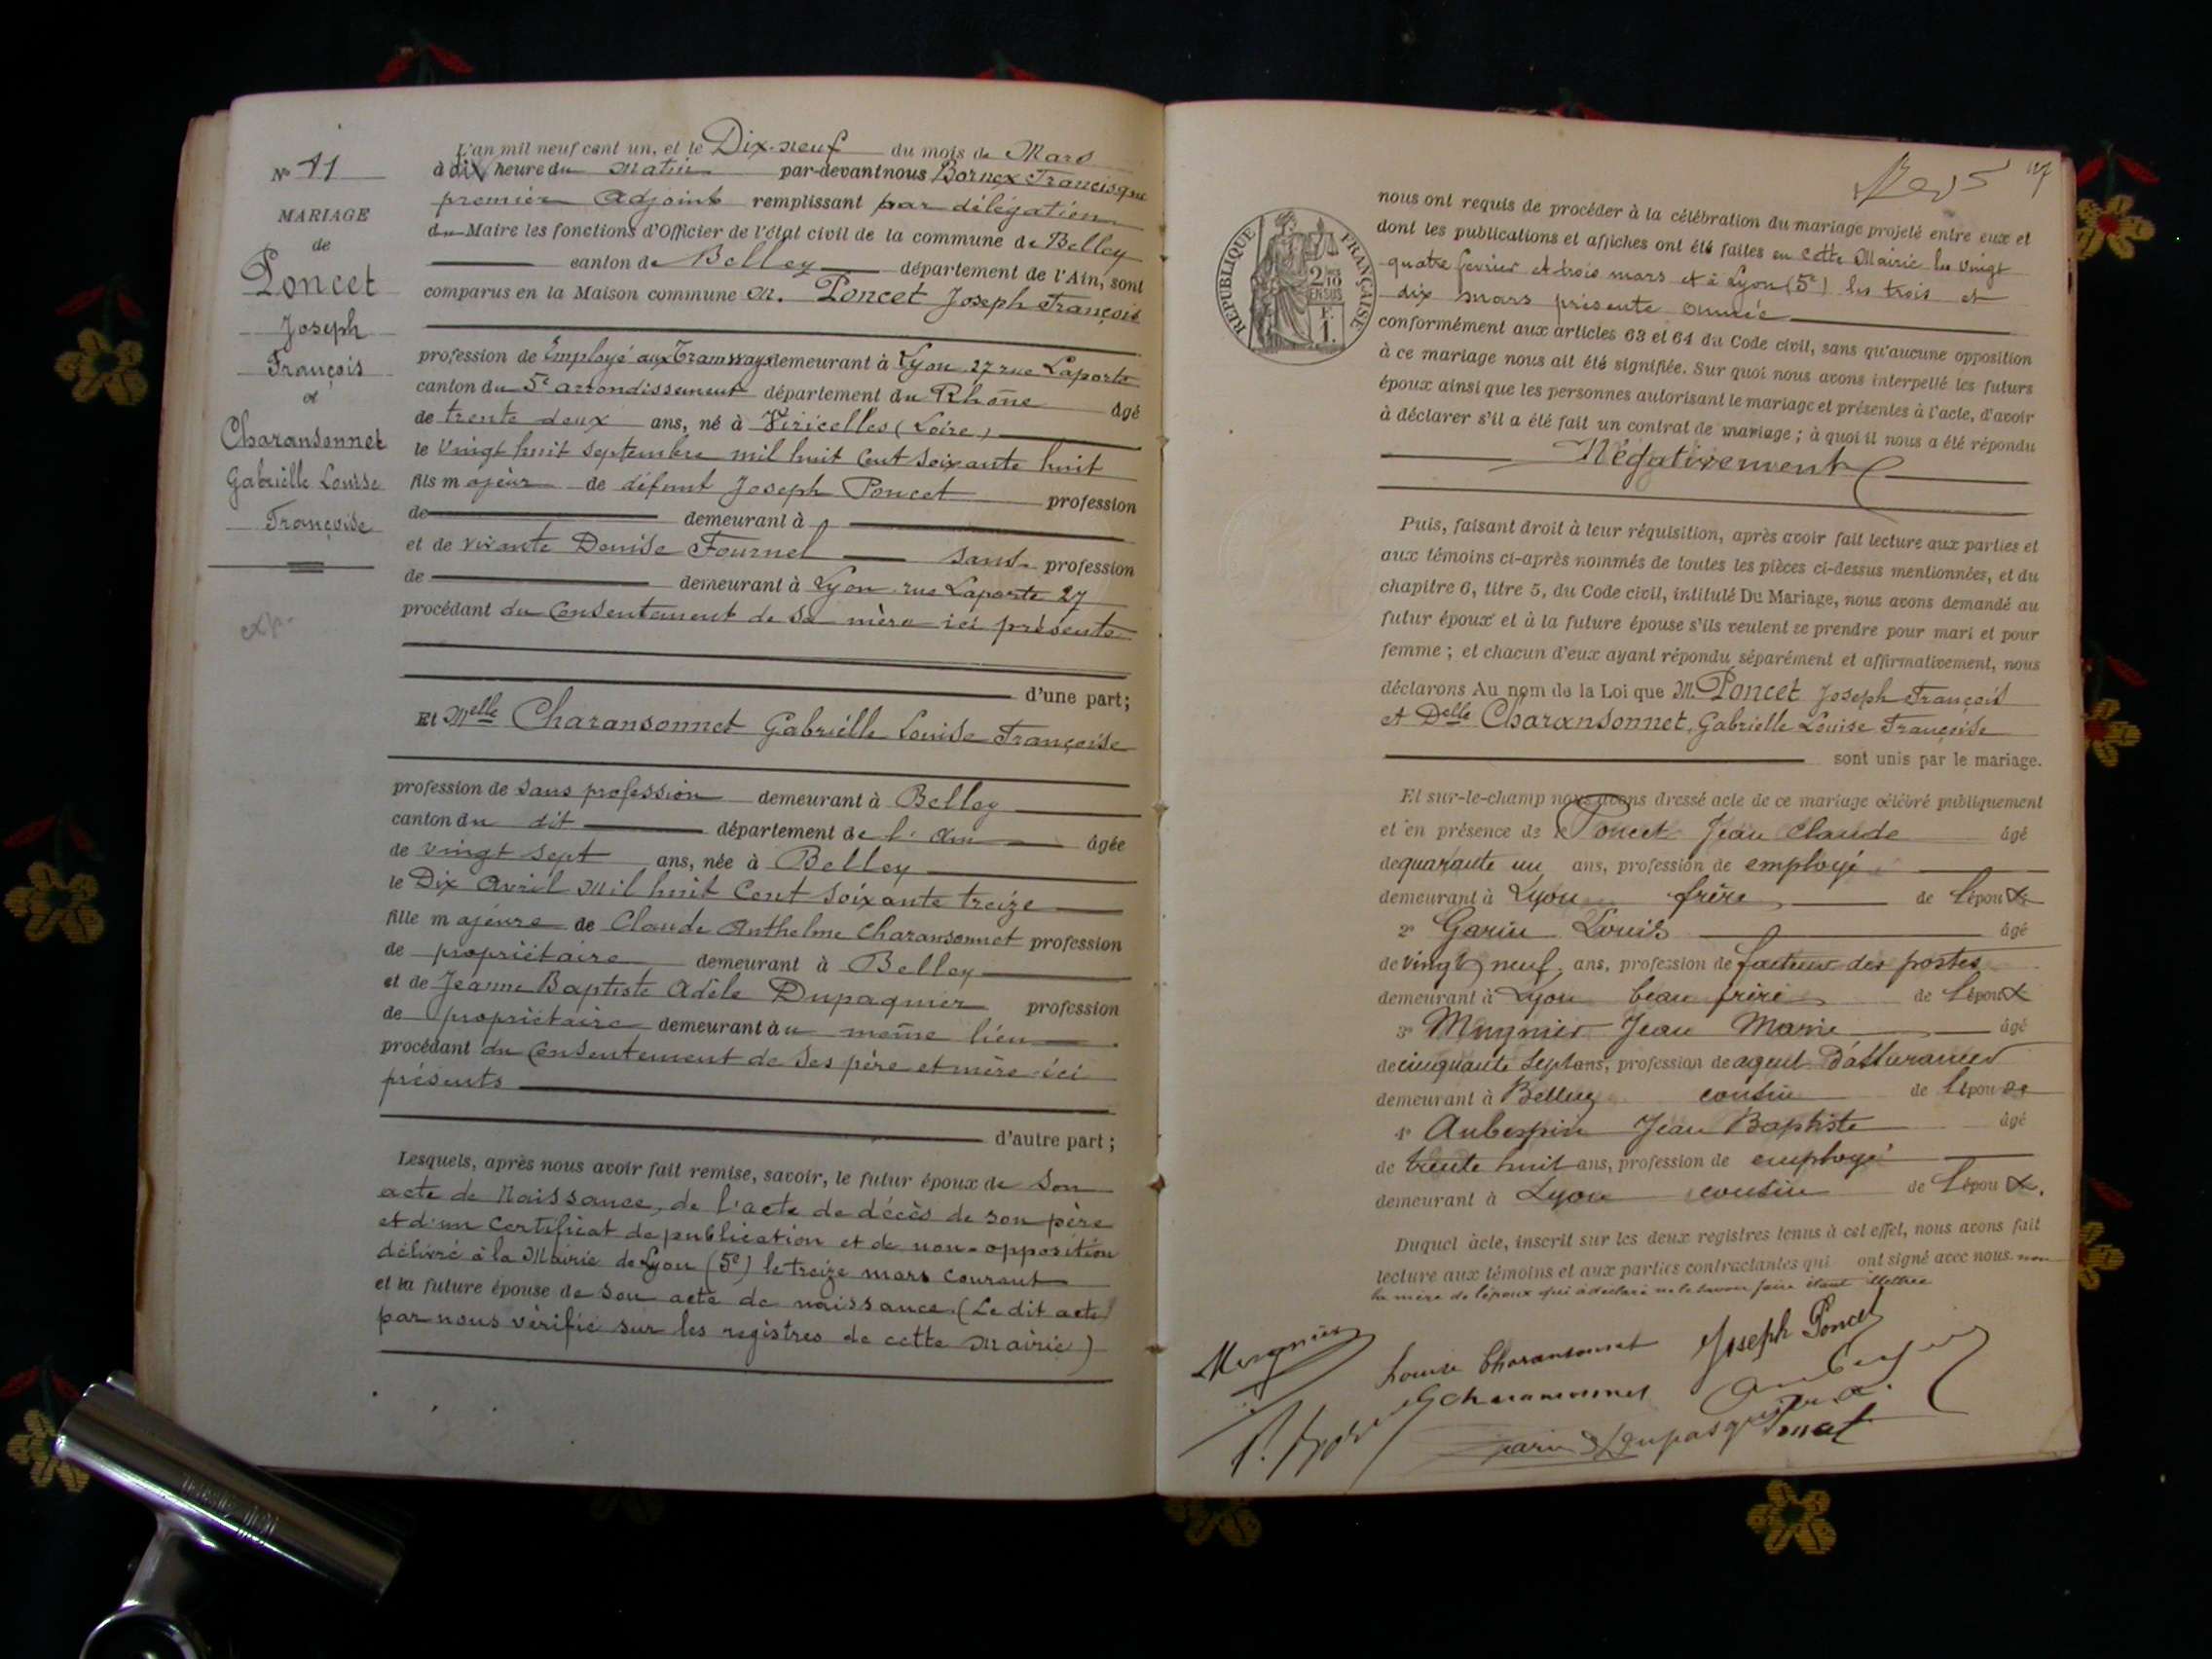 N° 11
MARIAGE
de
Poncet
Joseph
François
et
Charansonnet
Gabrielle Louise
Françoise
exp.
L'an mil neuf cent un, et le Dix-neuf du mois de Mars
à dix heure du matin par-devant nous Bornex Francisque
premier Adjoint remplissant par délégation
du Maire les fonctions d'Officier de l'état civil de la commune de Belley
canton de Belley département de l'Ain, sont
comparus en la Maison commune M. Poncet Joseph François
profession de Employé aux Tramways demeurant à Lyon 27 rue Laporte
canton du 5e arrondissement département du Rhône âgé
de trente deux ans, né à Viricelles (Loire)
le vingt huit septembre mil huit cent soixante huit
fils majeur de défunt Joseph Poncet profession
de demeurant à
et de vivante Denise Fournel sans profession
de demeurant à Lyon rue Laporte 27
procédant du consentement de sa mère ici présente
d'une part;
Et Melle Charansonnet Gabriélle Louise Françoise
profession de sans profession demeurant à Belley
canton du dit département de l'Ain âgée
de vingt sept ans, née à Belley
le Dix Avril Mil huit Cent soixante treize
fille majeure de Claude Anthelme Charansonnet profession
de propriétaire demeurant à Belley
et de Jeanne Baptiste Adèle Dupaquier profession
de propriétaire demeurant au même lieu
procédant du Consentement de ses père et mère ici
présents
d'autre part;
Lesquels, après nous avoir fait remise, savoir, le futur époux de son
acte de Naissance, de l'acte de décès de son père
et d'un Certificat de publication et de non-opposition
délivré à la Mairie de Lyon (5e) le treize mars courant
et la future épouse de son acte de naissance (Le dit acte
par nous vérifié sur les registres de cette Mairie)
RÉPUBLIQUE FRANÇAISE
2/10
EN SUS
F.
1.
nous ont requis de procéder à la célébration du mariage projeté entre eux et
dont les publications et affiches ont été faites en cette Mairie les vingt
quatre février et trois mars et à Lyon (5e) les trois et
dix mars présente année
conformément aux articles 63 et 64 du Code civil, sans qu'aucune opposition
à ce mariage nous ait été signifiée. Sur quoi nous avons interpellé les futurs
époux ainsi que les personnes autorisant le mariage et présentes à l'acte, d'avoir
à déclarer s'il a été fait un contrat de mariage; à quoi il nous a été répondu
Négativement
Puis, faisant droit à leur réquisition, après avoir fait lecture aux parties et
aux témoins ci-après nommés de toutes les pièces ci-dessus mentionnées, et du
chapitre 6, titre 5, du Code civil, intitulé Du Mariage, nous avons demandé au
futur époux et à la future épouse s'ils veulent se prendre pour mari et pour
femme; et chacun d'eux ayant répondu séparément et affirmativement, nous
déclarons Au nom de la Loi que M. Poncet Joseph François
et Delle Charansonnet, Gabrielle Louise Françoise
sont unis par le mariage.
Et sur-le-champ nous avons dressé acte de ce mariage célébré publiquement
et en présence de Poncet Jean Claude âgé
de quarante un ans, profession de employé
demeurant à Lyon frère de l'époux
2° Garin Louis âgé
de vingt neuf ans, profession de facteur des postes
demeurant à Lyon beau frère de l'époux
3° Mugnier Jean Marie âgé
de cinquante sept ans, profession de agent d'assurances
demeurant à Belley cousin de l'épouse
4° Aubespin Jean Baptiste âgé
de trente huit ans, profession de employé
demeurant à Lyon cousin de l'époux.
Duquel acte, inscrit sur les deux registres tenus à cet effet, nous avons fait
lecture aux témoins et aux parties contractantes qui ont signé avec nous non
la mère de l'époux qui a déclaré ne le savoir faire étant illettrée
Mugnier
Louise Charansonnet Joseph Poncet
Charansonnet
Garin Dupasquier
Poncet